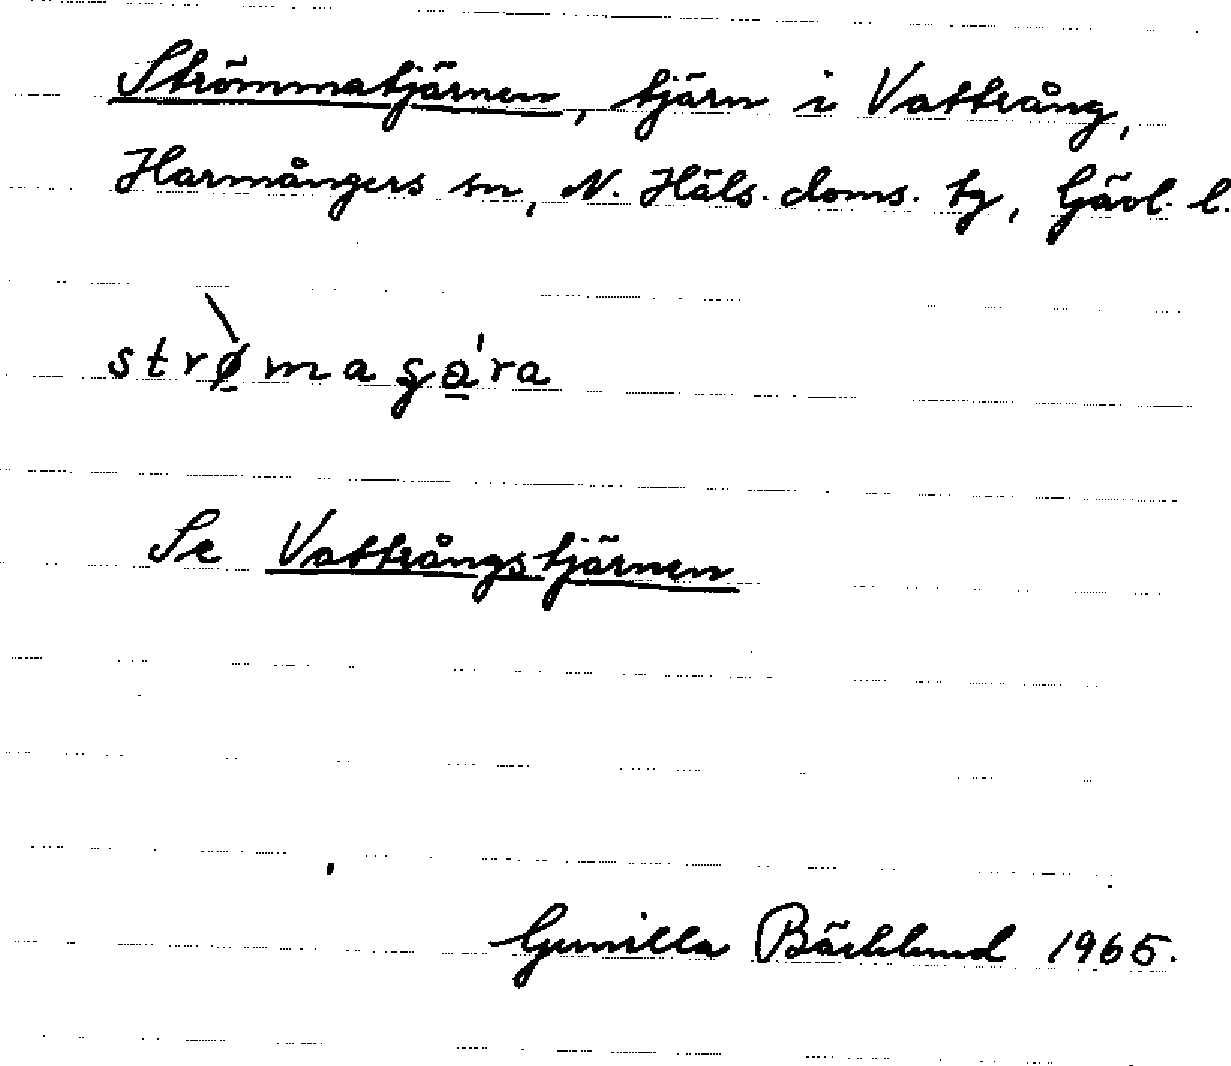 Strömmatjärnen, tjärn i Vattrång,
Harmångers sn, N. Häls. doms. tg, Gävl. l.
strø̠̀maga̠'ra
Se Vattrångstjärnen
Gunilla Bäcklund 1965.